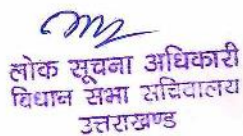 लोक सूचना अधिकारी
विधान सभा सचिवालय
उत्तराखण्ड